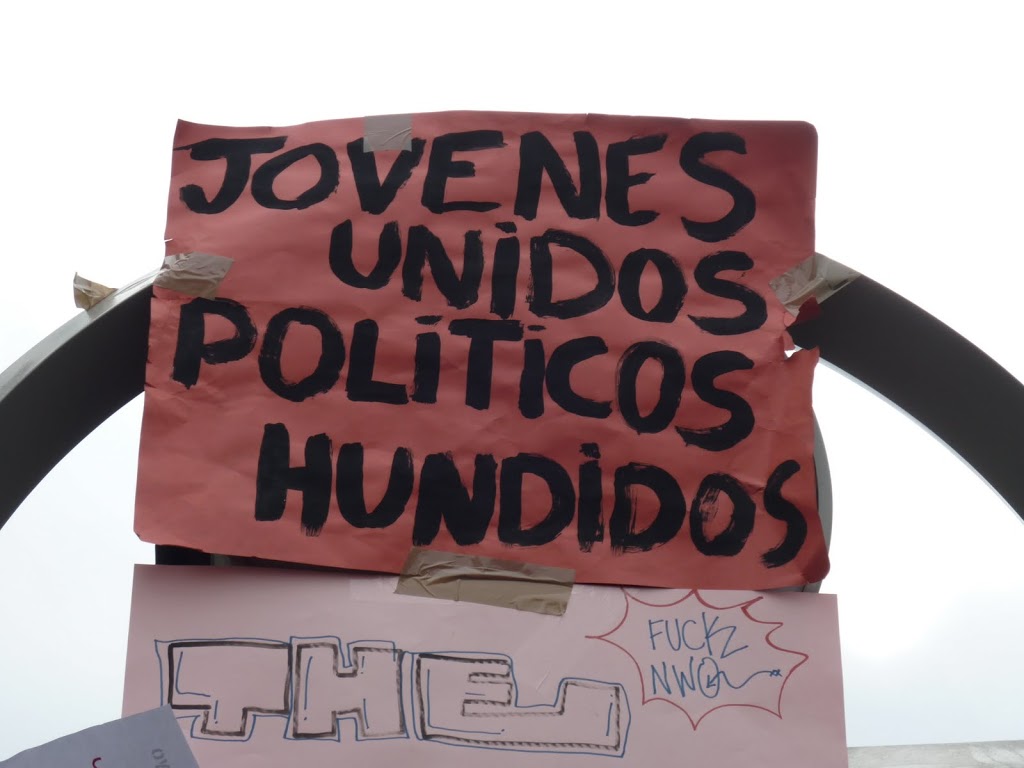 JOVENES
UNiDOS
POLiTiCOS
HUNDiDOS
FUCKZ
THE